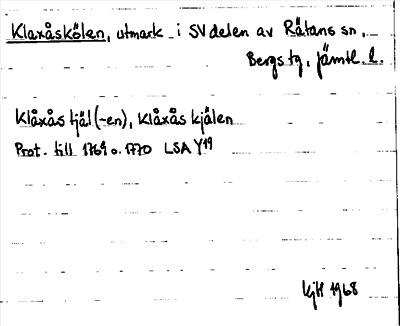 Klaxåskölen, utmark i SV delen av Rätans sn,
Bergs tg, Jämtl. l.
Klåxås tjäl (-en), Klåxås kjälen
Prot. till 1769 o. 1770 LSA Y19
KjH 1968